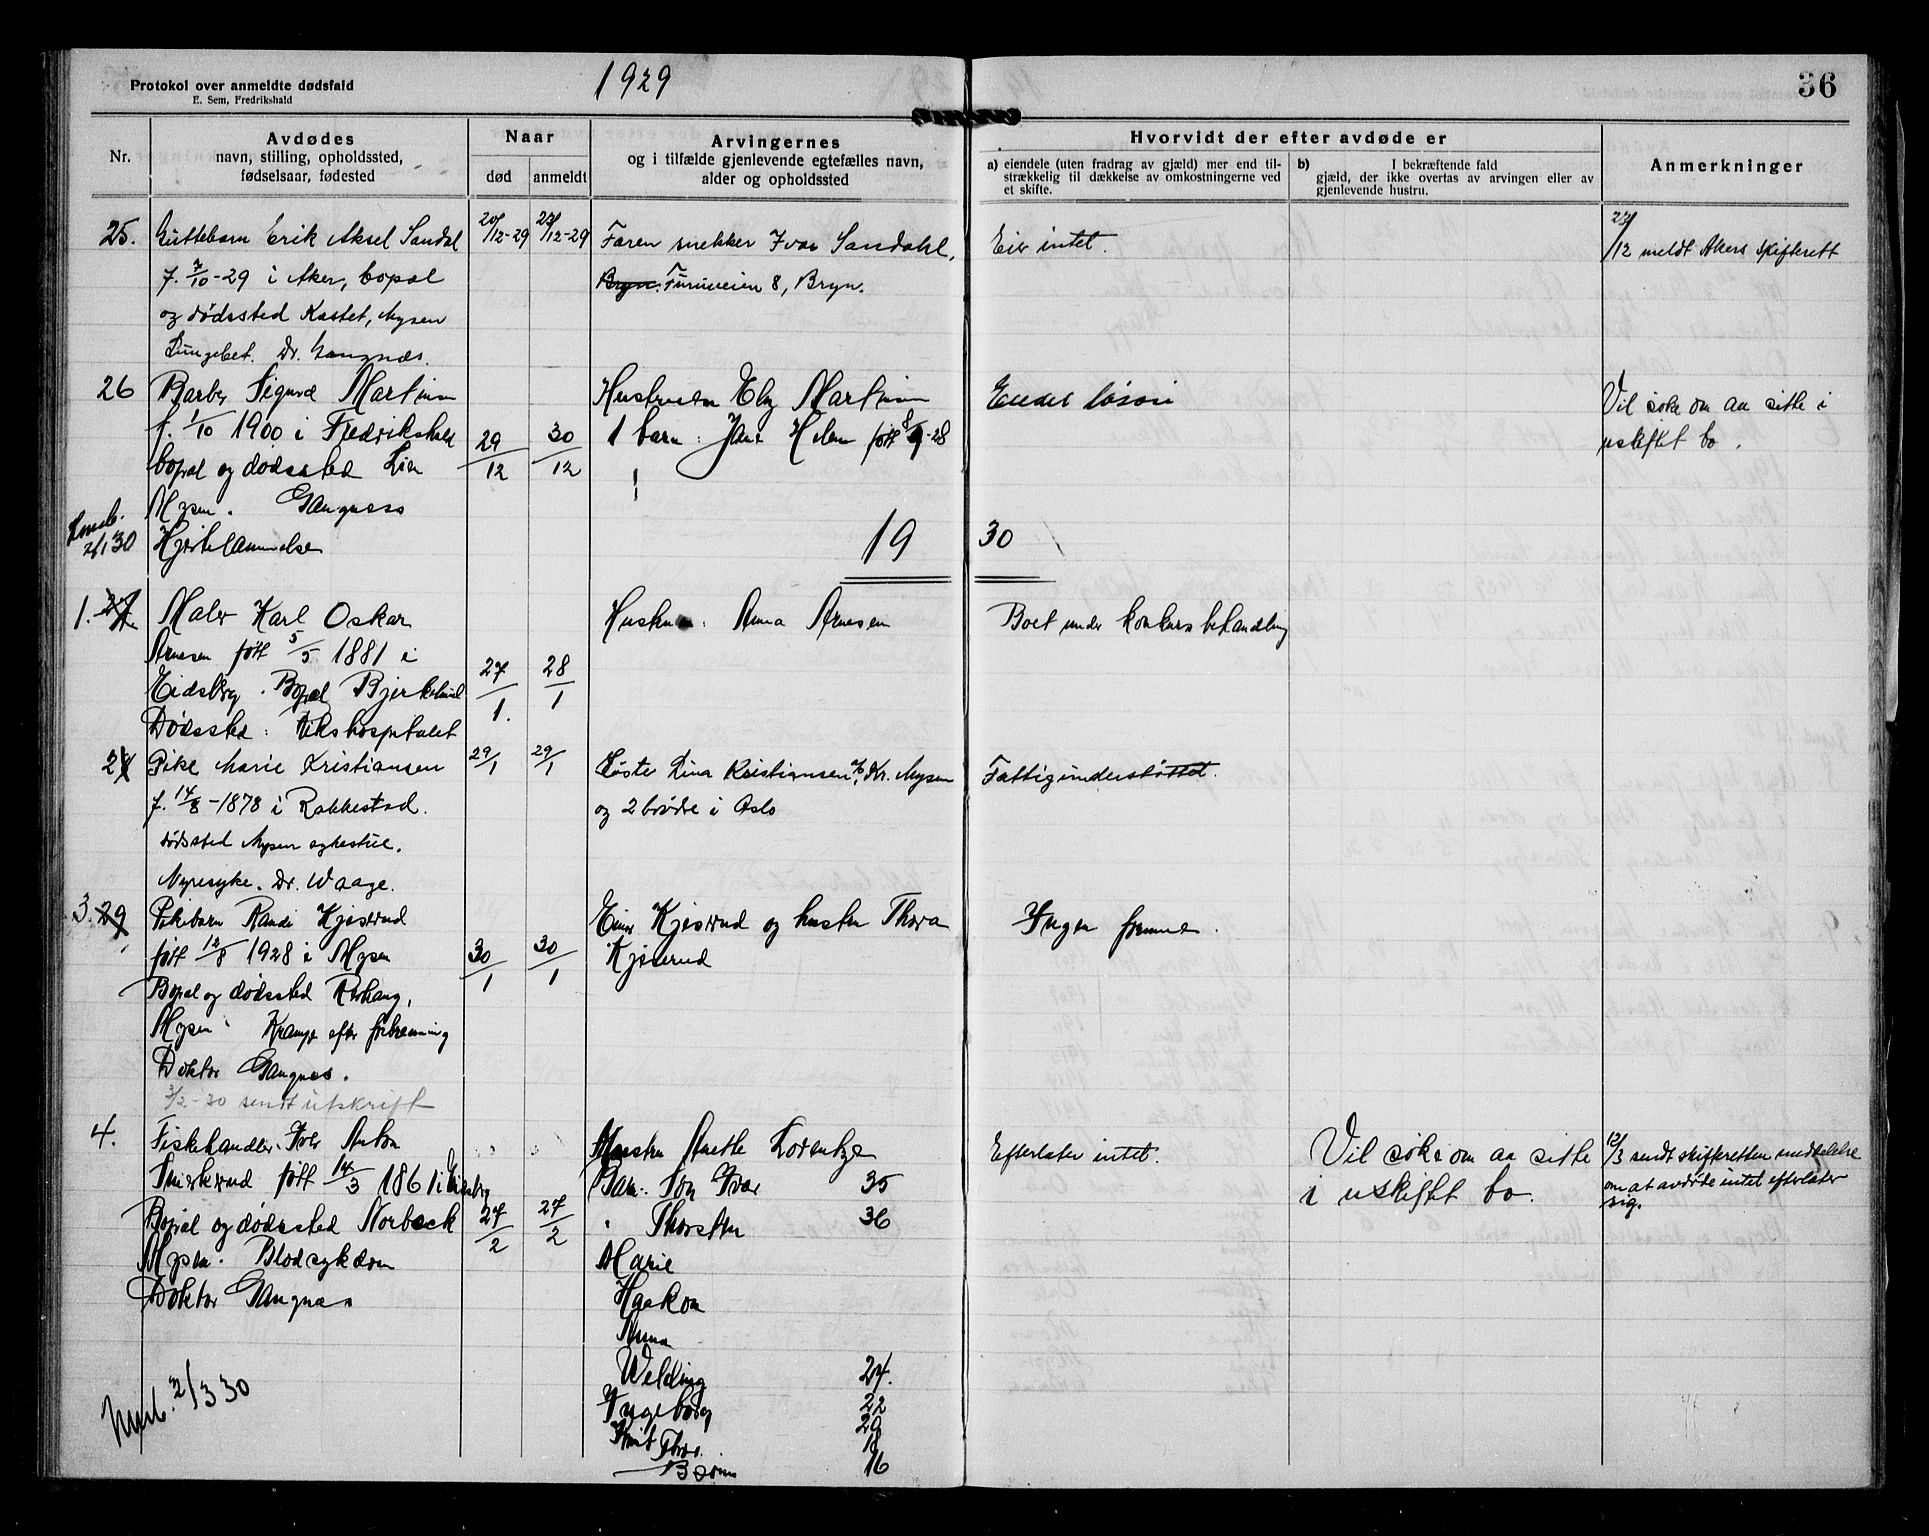 Protokol over anmeldte dødsfald
E. Sem, Fredrikshald
1929
36
Nr.
Avdødes
navn, stilling, opholdssted,
fødselsaar, fødested
Naar
død
anmeldt
Arvingernes
og i tilfælde gjenlevende egtefælles navn,
alder og opholdssted
Hvorvidt der efter avdøde er
a) eiendele (uten fradrag av gjæld) mer end til-
strækkelig til dækkelse av omkostningerne ved
et skifte.
b) I bekræftende fald
gjæld, der ikke overtas av arvingen eller av
gjenlevende hustru.
Anmerkninger
25. Guttebarn Erik Aksel Sandal
f. 3/10-29 i Aker, bopæl
og dødssted Kastet, Mysen
Lungebet. Dr. Gangnæs.
20/12-29
27/12-29
Faren snekker Ivar Sandahl,
Bryn. Furuveien 8, Bryn.
Eier intet.
27/12 meldt Akers skifterett
26 Barber Sigurd Martinsen
f. 1/10 1900 i Fredrikshald
bopæl og dødssted Lien
Mysen. Gangnæss
Hjertelammelse
2/1 30
29/12
30/12
Hustruen Elly Martinsen
1 barn: Jane Helen født 8/9-28
Endel løsøre
Vil søke om aa sitte i
uskiftet bo.
19 30
1. 27 Maler Karl Oskar
Arnesen født 5/5 1881 i
Eidsberg. Bopæl Bjerkelund
Dødssted: Rikshospitalet
27/1.
28/1
Hustru: Anna Arnesen
Boet under konkursbehandling
2 Pike Marie Kristiansen
f. 14/8-1878 i Rakkestad.
dødssted Mysen sykestue.
Nyresyke. Dr. Waage.
29/1
29/1
Søster Lina Kristiansen, Mysen
og 2 brødre i Oslo
Fattigunderstøttet.
3. 29 Pikebarn Randi Kjiserud
født 12/8 1928 i Mysen
Bopæl og dødssted
Mysen. Krampe efter forbrenning
Doktor Gangnæs.
3/2-30 sendt utskrift
30/1
30/1
Einar Kjiserud og hustru Thora
Kjiserud
Ingen formue.
4. Fiskehandler Anton
født 14/3 1861 i Eidsberg
Bopæl og dødssted Norbeck
Mysen. Blodsykdom
Doktor Gangnæs
2/3 30
27/2
27/2
Hustru Anethe Lorentze
Barn: Søn Ivar 35
" Thorsten 36
Marie
Haakon
Anna
Welding 24.
Ingeborg 22
20
Thor 18
16
Efterlater intet.
Vil søke om aa sitte
i uskiftet bo.
12/3 sendt skifteretten meddelelse
om at avdøde intet efterlater
sig.